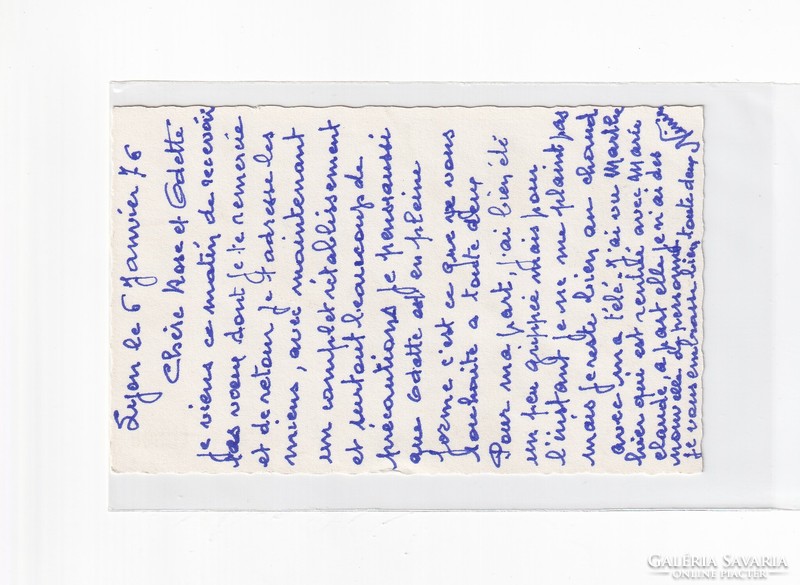 Lyon le 6 Janvier 76
Chère Rose et Odette
je viens ce matin de recevoir
tes voeux dont je te remercie
et de retour je t'adresse les
miens, avec maintenant
un complet rétablissement
et surtout beaucoup de
précautions je pense aussi
que Odette est en pleine
forme c'est ce que je vous
souhaite a toute deux
Pour ma part, j'ai bien été
un peu grippée mais pour
l'instant je ne me plaint pas
mais je reste bien au chaud
avec ma télé j'ai vu Marthe
hier qui est rentré avec Marie
claude, a part elle je n'ai des
nouvelles de personne
je vous embrasse bien toute deux
GALÉRIA SAVARIA
ONLINE PIACTÉR